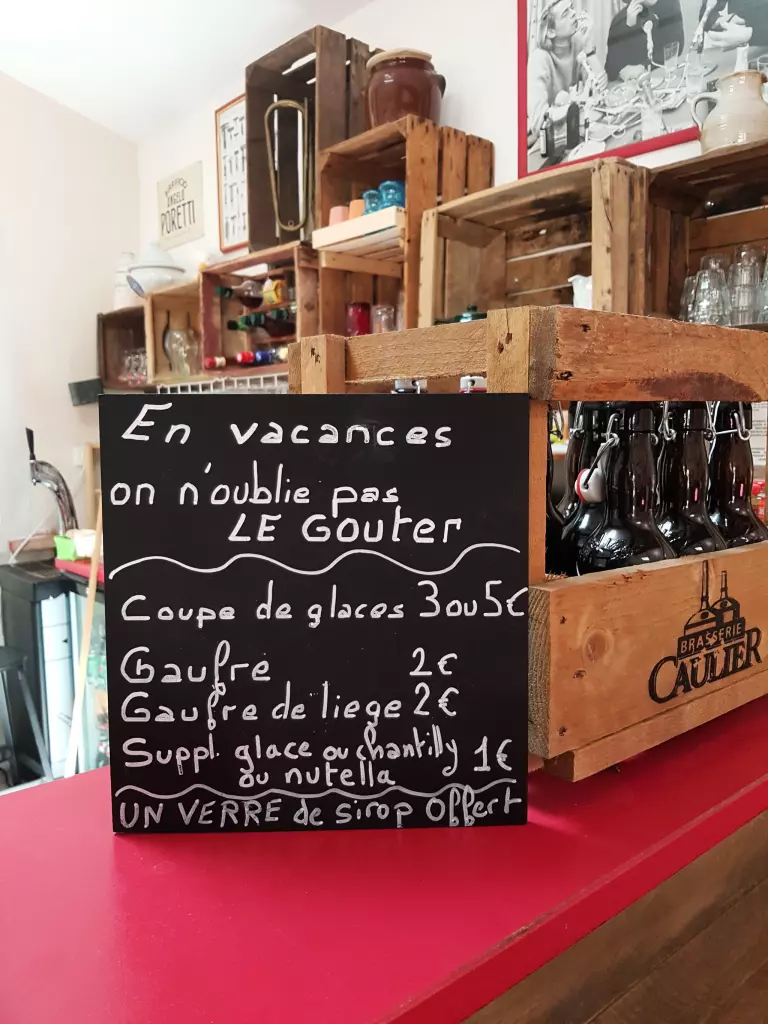 BIRRIFICIO
ANGELO
PORETTI
En vacances
on n'oublie pas
LE Gouter
Coupe de glaces 3 ou 5€
Gaufre 2€
Gaufre de liege 2€
Suppl. glace ou chantilly 1€
ou nutella
UN VERRE de sirop offert
BRASSERIE
CAULIER